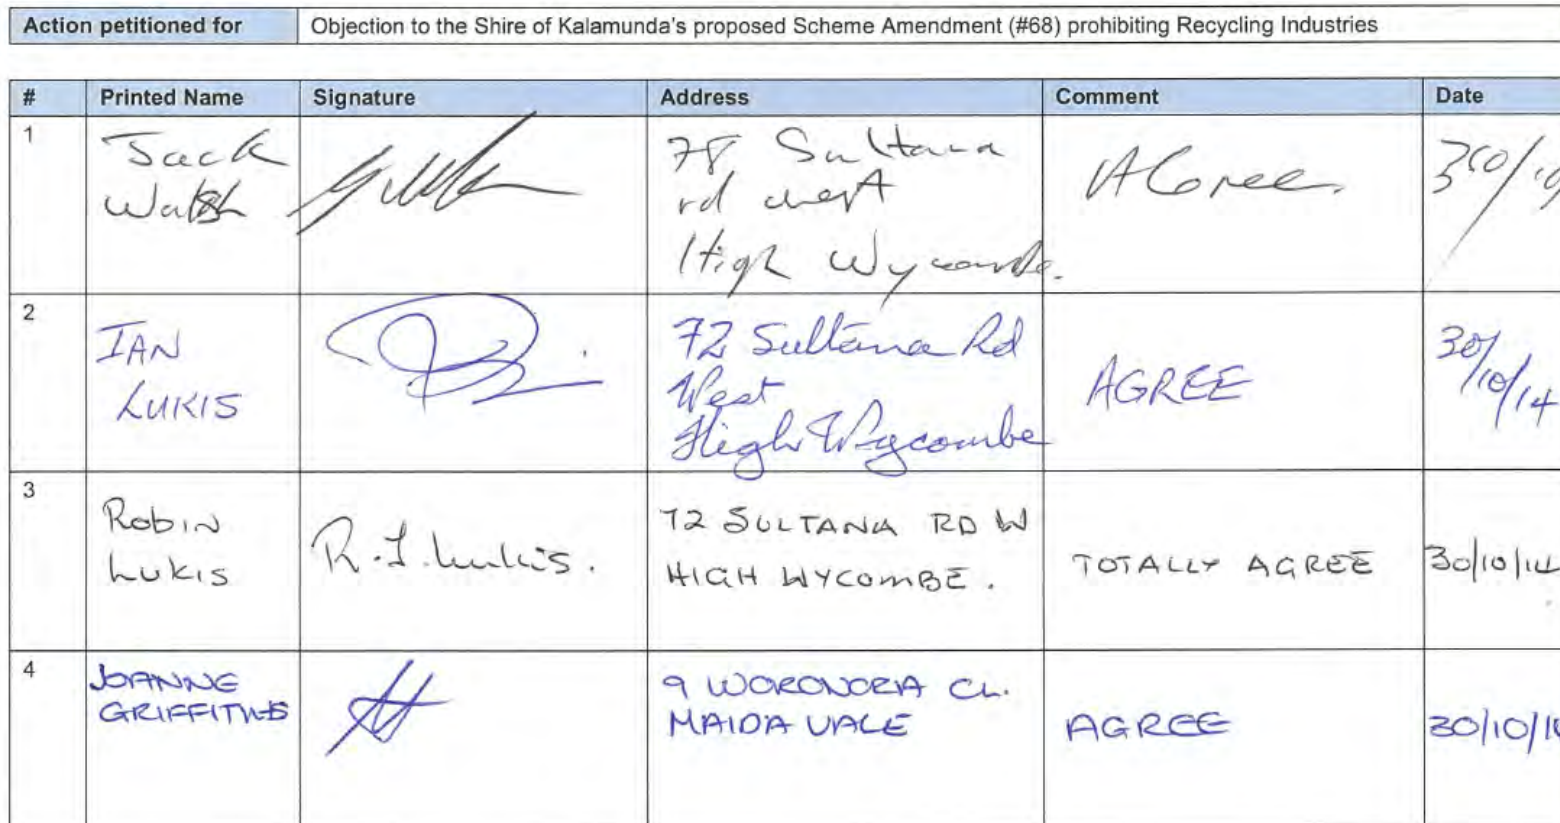 Action petitioned for Objection to the Shire of Kalamunda's proposed Scheme Amendment (#68) prohibiting Recycling Industries
# Printed Name Signature Address Comment Date
1 Jack Walsh 78 Sultana rd west High Wycombe. AGree. 30/10
2 IAN LUKIS 72 Sultana Rd West High Wycombe AGREE 30/10/14
3 Robin LUKIS R.J. Lukis. 72 SULTANA RD W HIGH WYCOMBE. TOTALLY AGREE 30/10/14
4 JOANNE GRIFFITHS 9 WORONORA CL. MAIDA VALE AGREE 30/10/1